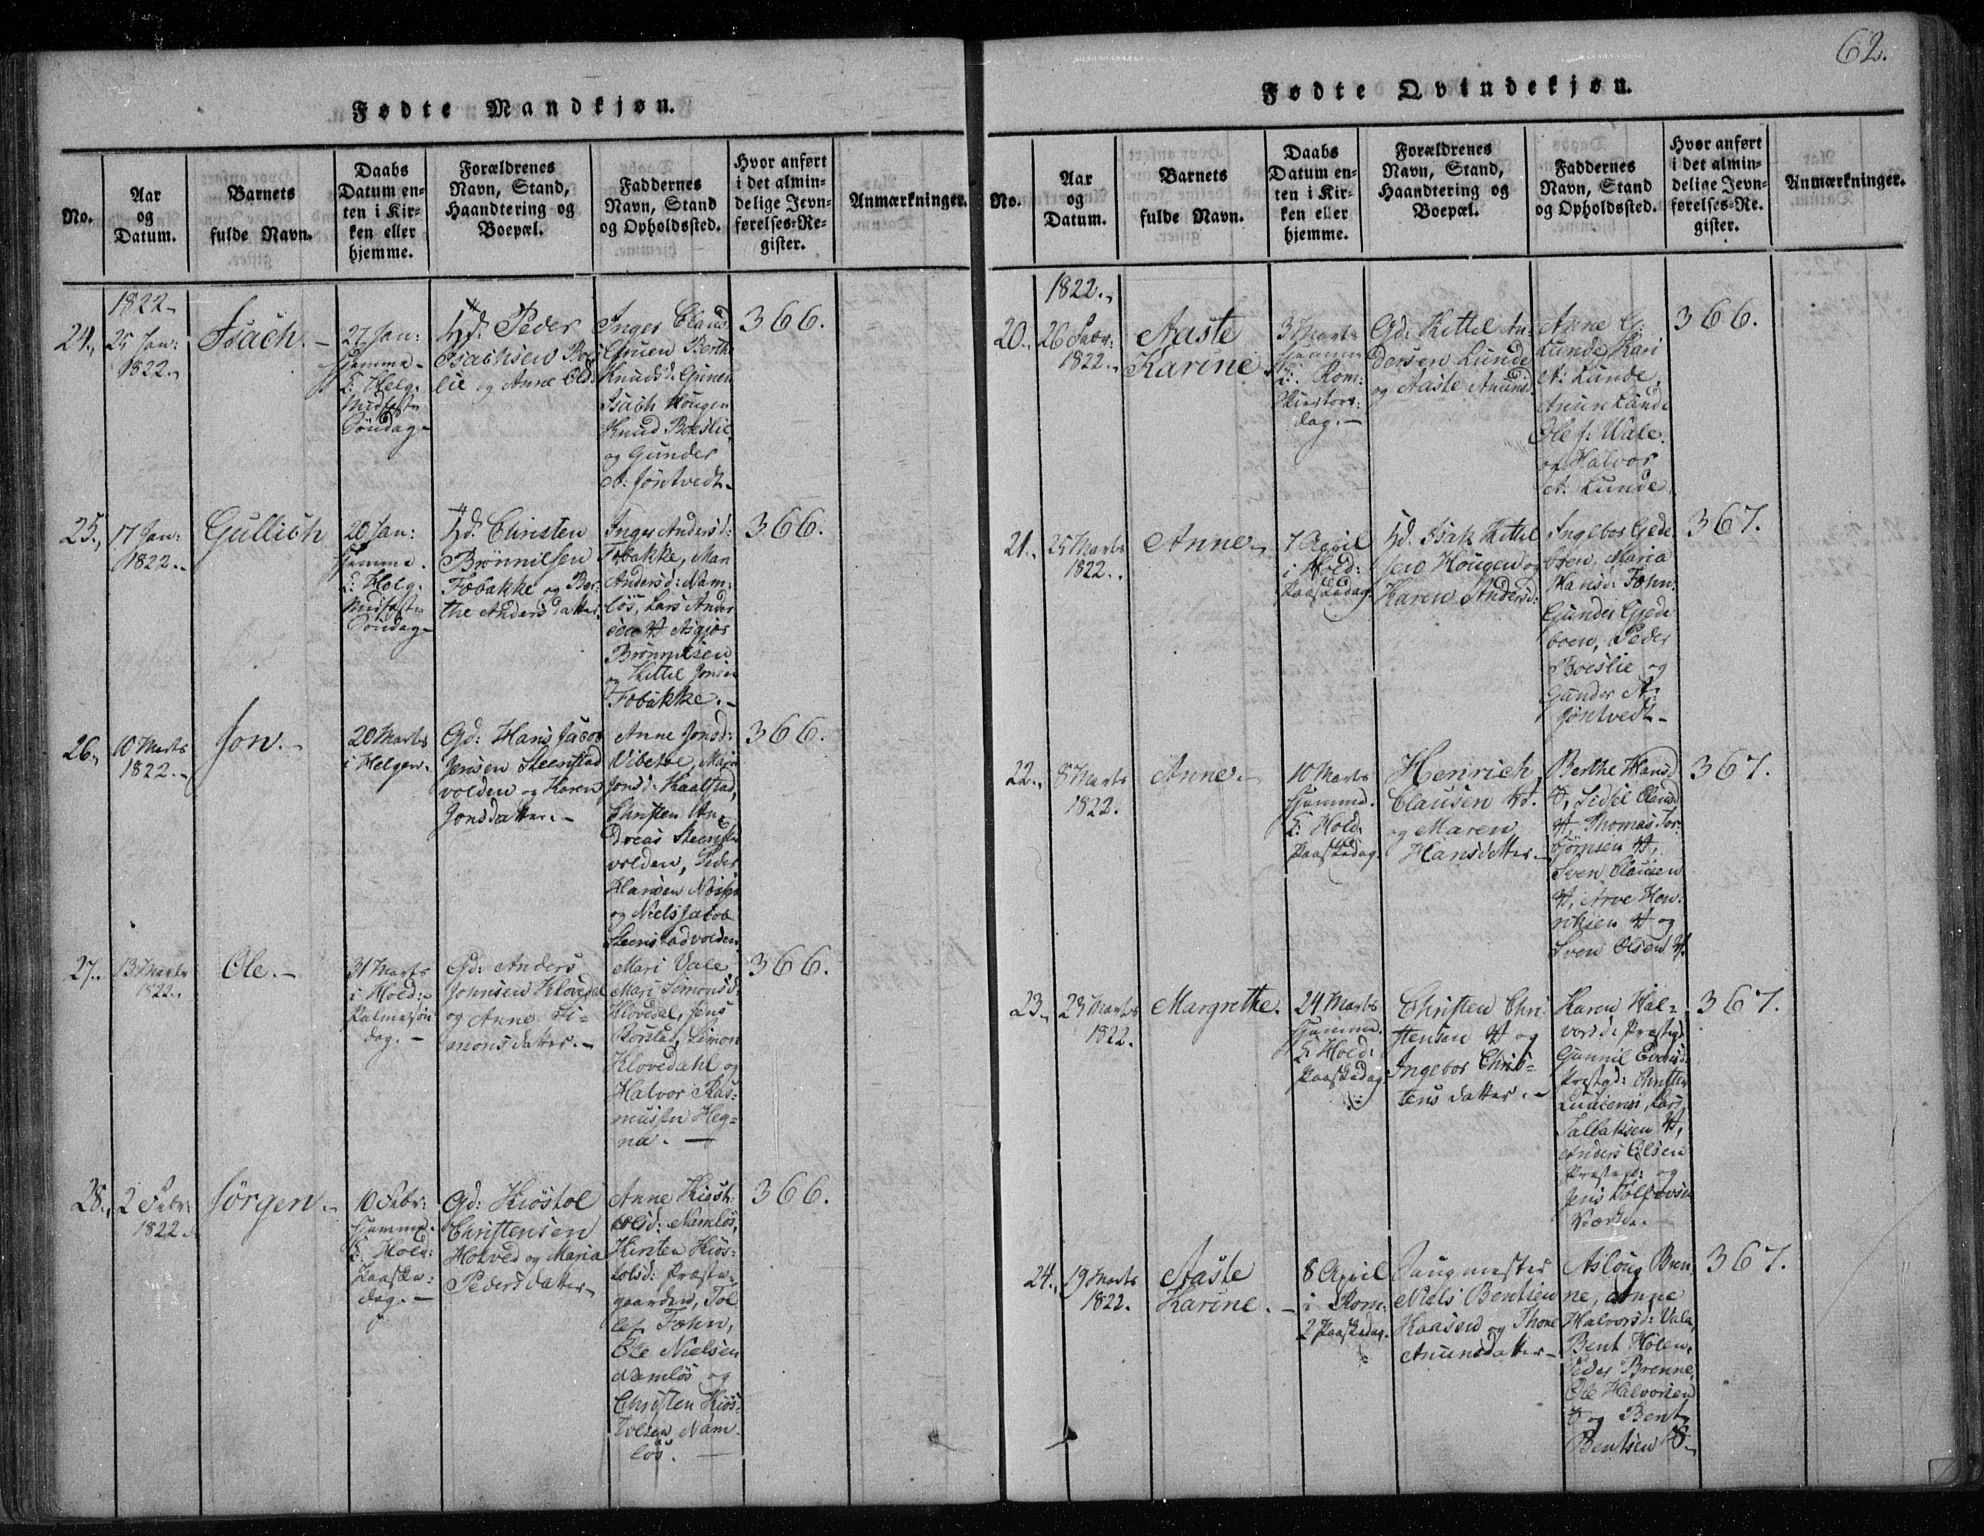 62.
Fødte Mandkjøn.
No.
Aar
og
Datum.
Barnets
fulde Navn.
Daabs
Datum en-
ten i Kir-
ken eller
hjemme.
Forældrenes
Navn, Stand,
Haandtering og
Boepæl.
Faddernes
Navn, Stand
og Opholdssted.
Hvor anført
i det almin-
delige Jevn-
førelses-Re-
gister.
Anmærkninger.
24.
1822
25 Jan:
1822.
Isach.
27 Jan:
hjemme
Midfaste
Søndag
Hd: Peder
Isachsen Boes
lie og Anne Old:
Inger Claus
Gruen Berthe
Knudsd: Grinen
Isach Hougen
Knud Boeslie,
og Gunder
A: Jøntvedt
366.
25.
17 Jan:
1822.
Gullich
20 Jan:
hjemme.
Midfaste
Søndag
Hd: Christen
Brønnilsen
Fobakke og Ber-
the Andersdatter
Inger Andersd:
Fobakke, Mari
Andersd: Nam-
løs, Lars Ander
sen H Asgjør
Brønnilsen
og Kittil Jonsen
Fobakke.
366.
26.
10 Marts
1822.
Jon.
20 Marts
i Helgen.
Gd: Hans Jacob
Jensen Steenstad
volden og Karen
Jonsdatter.
Anne Jonsd:
Vibetøe, Mari
Jonsd: Kaalstad,
Christen An-
dreas Steenstad
volden, Peder
Hansen
og Niels Jacob
Steenstadvolden.
366.
27.
13 Marts
1822.
Ole.
31 Marts
i Hold:
Palmesøn
dag.
Gd: Anders
Johnsen Klovedal
og Anne Si-
monsdatter.
Mari Vale,
Mari Simonsd:
Klovedal, Jens
Rorstad, Simon
Klovedahl og
Halvor Ras-
mussen Heg-
na.
366.
28.
2 Febr:
1822.
Jørgen.
10 Febr:
hjemme.
i Hold:
Paaske-
dag.
Gd: Kiøstol
Christensen
Holved og Maria
Pedersdatter
Anne Kiøst-
olsd: Namløs,
Kirsten Kiøs-
tolsd: Præste-
gaarden, Tol
lef Fæhn,
Ole Nielsen
Namløs og
Christen Kiøs-
tolsen Nam-
løs.
366.
Fødte Qvindekjøn.
No.
Aar
og
Datum.
Barnets
fulde Navn.
Daabs
Datum en-
ten i Kir-
ken eller
hjemme.
Forældrenes
Navn, Stand,
Haandtering og
Boepæl.
Faddernes
Navn, Stand
og Opholdssted.
Hvor anført
i det almin-
delige Jevn-
førelses-Re-
gister.
Anmærkninger.
20.
1822.
26 Febr:
1822.
Aaste
Karine.
3 Marts
hjemme
i Rom:
Skiertors-
dag.
Gd: Kittel An-
dersen Lunde
og Aaste Anunds
Anne G:
Lunde, Kari
A: Lunde,
Anun Lunde
Ole J: Vale
og Halvor
A: Lunde.
366.
21.
25 Marts
1822.
Anne
7 April
i Hold:
Paaskedag
Hd: Isak Kittel
sen Hougen og
Karen Andersd:
Ingebor Gjede
boen, Maria
Hansd: Fæhn
Gunder Gjede
boen, Peder
Boeslie og
Gunder A:
Jøntvedt
367.
22.
8 Marts
1822.
Anne
10 Marts
hjemme.
i Hold:
Paaskedag.
Henrich
Clausen H.
og Maren
Hansdatter.
Berthe Hansd
H, Sidsel Clausd
H Thomas Tor-
bjørnsen H,
Sven Clausen
H, Arve Hen-
riksen H og
Sven Olsen H.
367.
23.
23 Marts
1822.
Margrethe.
24 Marts
hjemme.
i Hold:
Paaskedag
Christen Chri-
stensen H og
Ingebor Chris-
tensdatter.
Karen Hal-
vorsd: Præstgd:
Gunnil Evensd:
Præstgd: Christen
Lars
Tallaksen H,
Anders Olsen
Præstgd: og
Jens Tolfsen
367.
24.
19 Marts
1822.
Aaste
Karine.
8 April
i Rom:
2 Paaskedag.
Saugmester
Niels Bentsen
Kaasen og Thone
Anunsdatter
Asloug Bren-
ne, Anne
Halvorsd: Vala,
Bent Holen,
Peder Brenne,
Ole Halvorsen
H og Bent
Bentsen S
367.